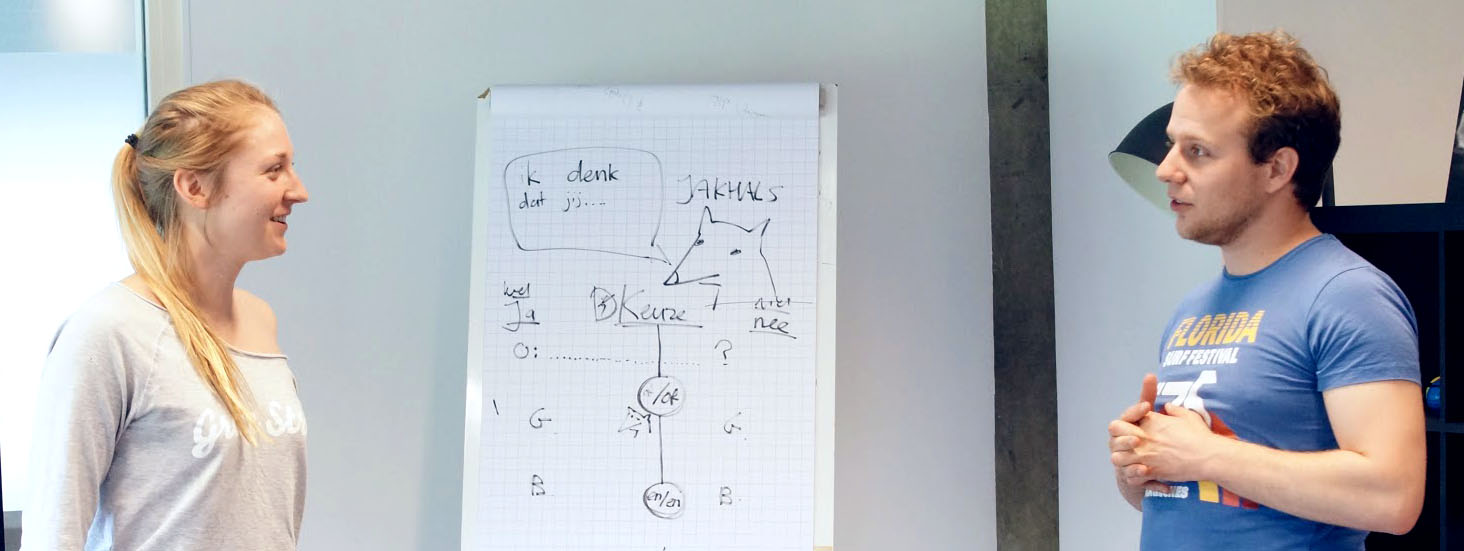 ik denk
dat jij....
JAKHALS
wel
Ja
Keuze
niet
nee
O: ........................ ?
/of
G. G.
en/en
B. B.
FLORIDA
SURF FESTIVAL